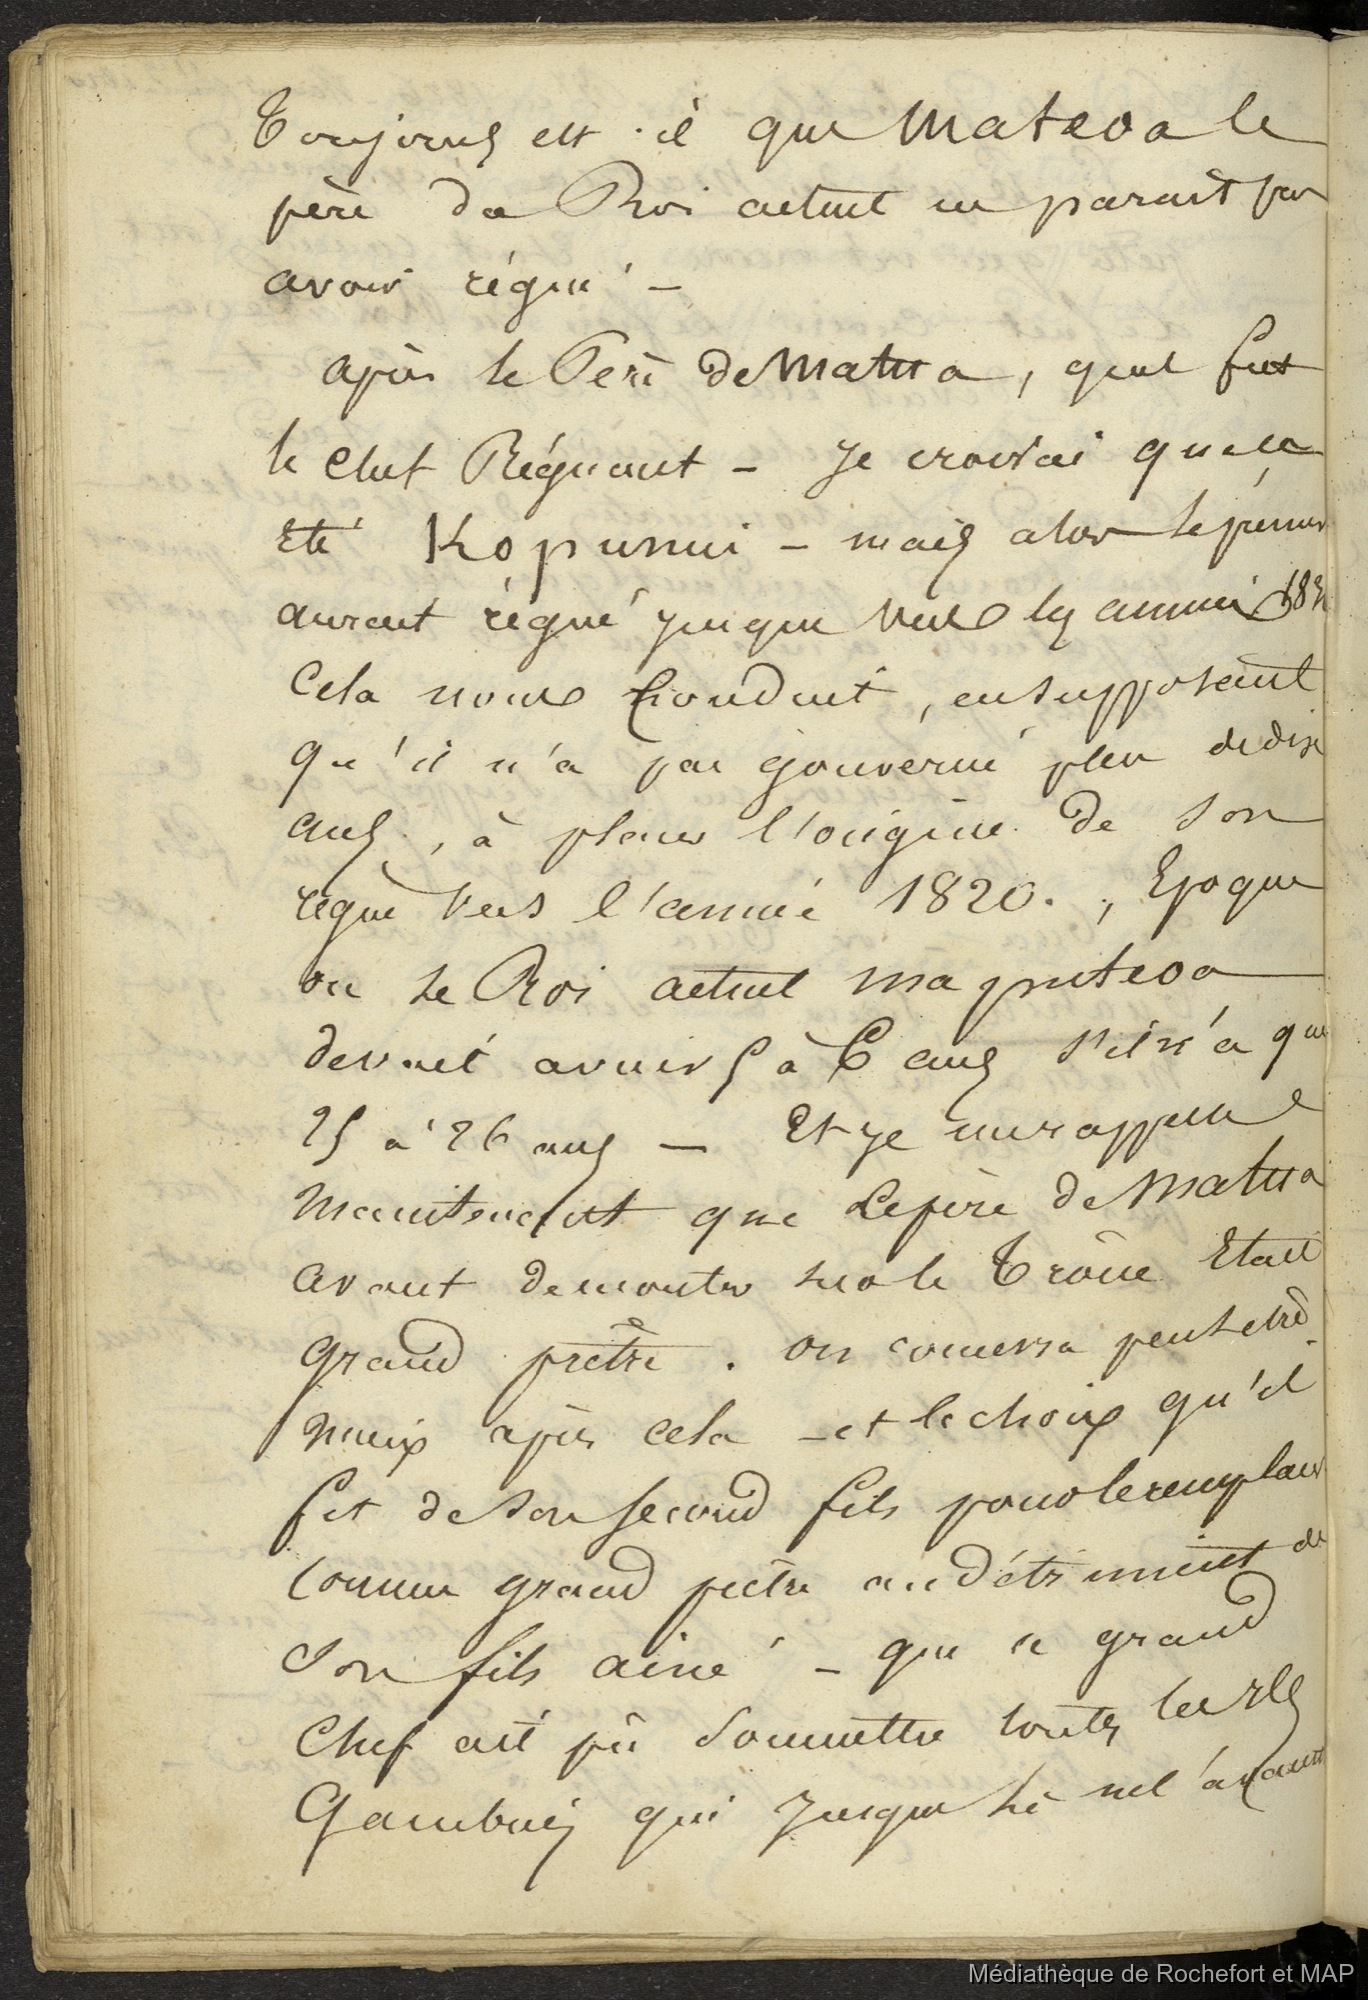 Toujours est-il que Mateoa le
père du Roi actuel ne parait pas
avoir régné –
après le Père de Matua, quel fut
le chef Régnant – je croirai que ce
Eté Kopunui – mais alors le premier
aurait régné jusque vers les années
Cela nous Conduit, en supposant
qu'il n'a pas gouverné plus de dix
ans, à placer l'origine de son
règne vers l'année 1820. , Epoque
ou le Roi actuel Maputeoa
devait avoir 5 à 6 ans s'il n'a que
25 à 26 ans – Et je me rappelle
Maintenant que le père de Matua
avant de monter sur le Trône Etait
grand prêtre . on concevra peut etre
mieux après cela – et le choix qu'il
fit de son second fils pour le remplacer
Comme grand prêtre au détriment de
son fils ainé – que ce grand
Chef ait pû soumettre toutes les Iles
Gambier qui jusque là ne l'avaient